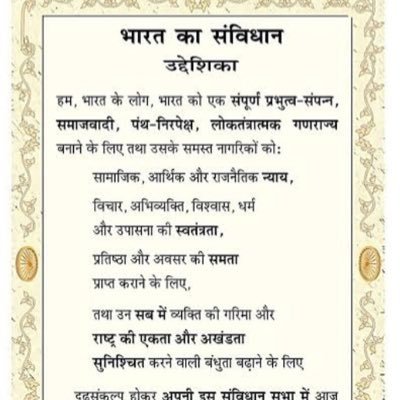 भारत का संविधान
उद्देशिका
हम, भारत के लोग, भारत को एक संपूर्ण प्रभुत्व-संपन्न,
समाजवादी, पंथ-निरपेक्ष, लोकतंत्रात्मक गणराज्य
बनाने के लिए तथा उसके समस्त नागरिकों को:
सामाजिक, आर्थिक और राजनैतिक न्याय,
विचार, अभिव्यक्ति, विश्वास, धर्म
और उपासना की स्वतंत्रता,
प्रतिष्ठा और अवसर की समता
प्राप्त कराने के लिए,
तथा उन सब में व्यक्ति की गरिमा और
राष्ट्र की एकता और अखंडता
सुनिश्चित करने वाली बंधुता बढ़ाने के लिए
दृढ़संकल्प होकर अपनी इस संविधान सभा में आज